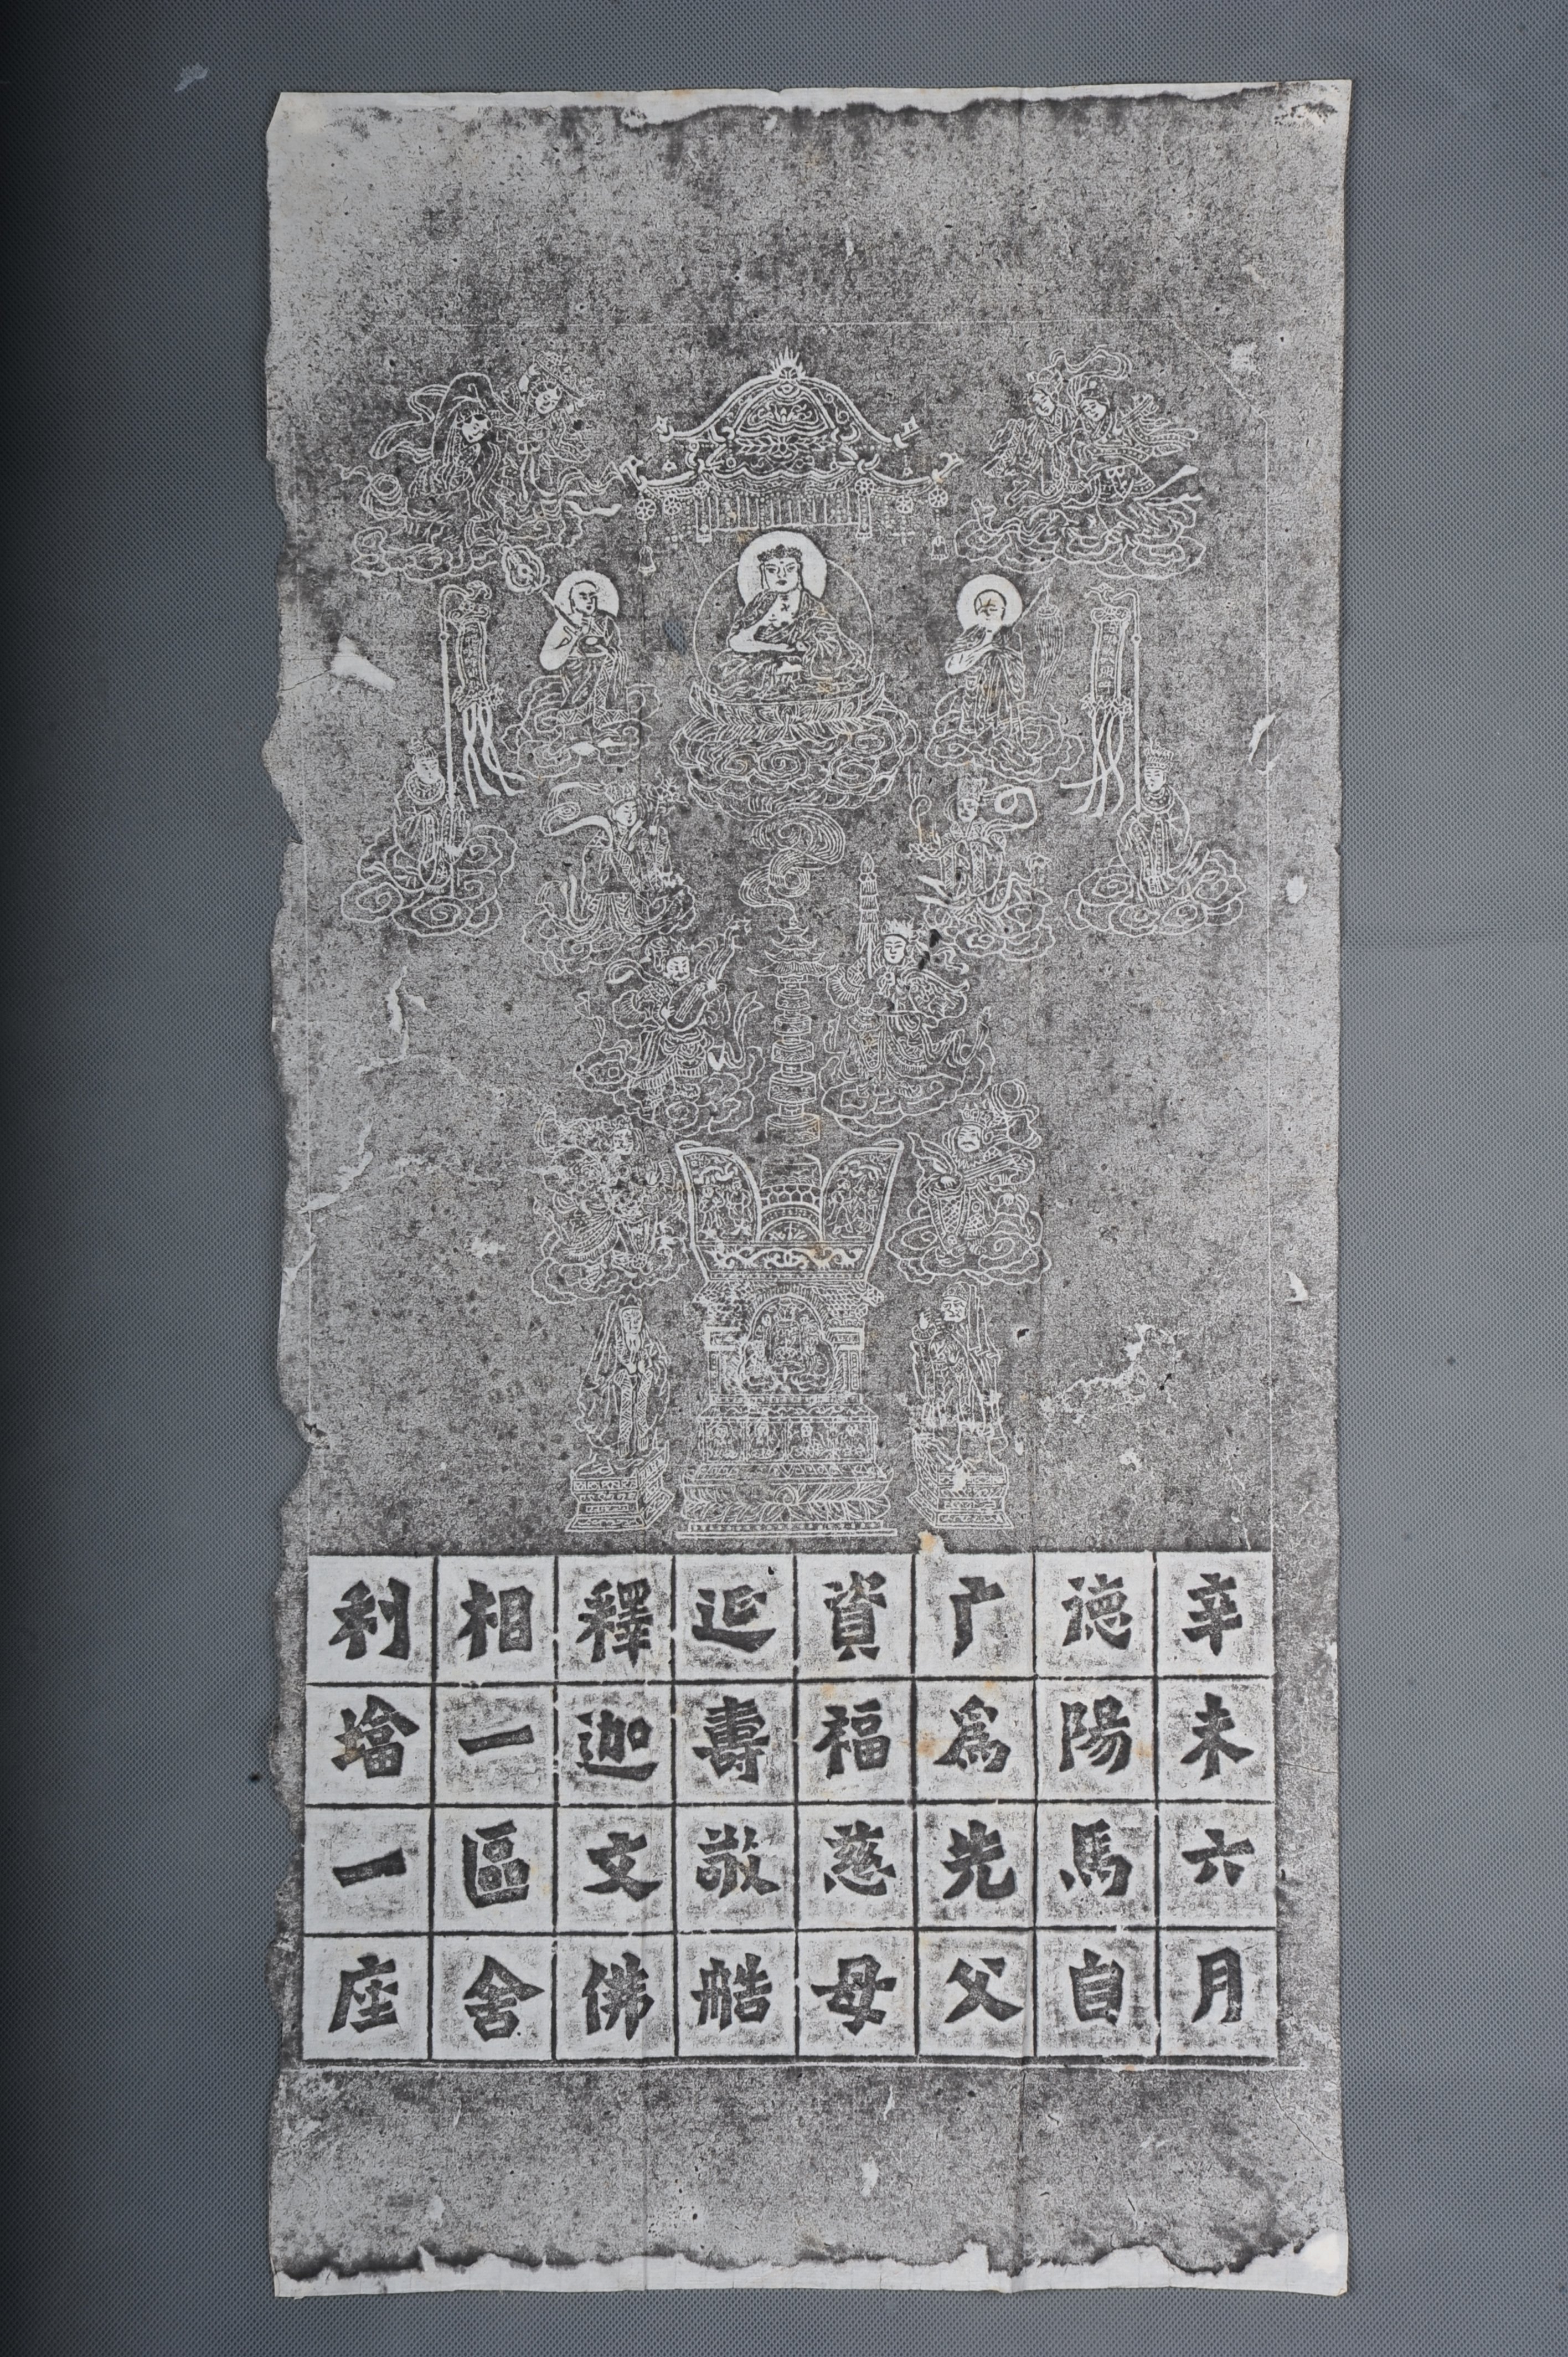 辛未六月
德陽馬自
广為先父
資福慈母
延壽敬
釋迦文佛
相一區舍
利墖一座